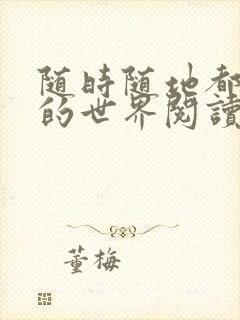 随時随地都
的世界閱讀
董梅